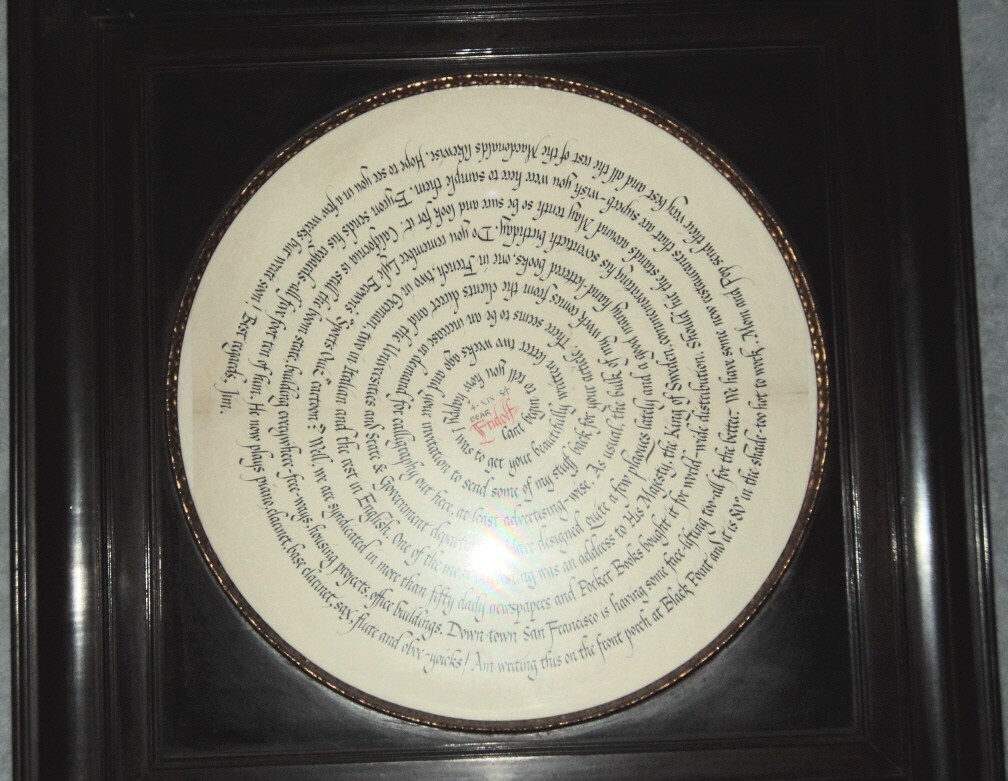 DEAR
Fridolf
Can't begin to tell you how happy
I was to get your beautifully written letter two weeks ago and
your invitation to send some of my stuff back for your article. There seems to be an increase in demand
for calligraphy out here, at least advertising-wise. As usual, the bulk of my work comes from the clients direct and the Universities
and State & Government have designed quite a few plaques lately and a good many hand-lettered books, one in French, two in German, two in Italian
and the rest in English. One of the most interesting was an address to His Majesty, the King of Sweden, commemorating his seventieth birthday. Do you remember Lyle Brown's "Sports Quiz" cartoon? Well,
we are syndicated in more than fifty daily newspapers and Pocket Books bought it for world-wide distribution. Should hit the stands around May tenth so be sure and look for it. California is still the boom state, building
everywhere-free-ways, housing projects, office buildings. Down-town San Francisco is having some face-lifting too-all for the better. We have some new restaurants that are superb-wish you were here to sample them. Byron sends his regards-all five foot ten of him.
He now plays piano, clarinet, base clarinet, sax, flute and oboe-yoicks! Am writing this on the front porch at Black Point and it is 80° in the shade-too hot to work. Mom and Pop send their very best and all the rest of the Macdonalds likewise. Hope to see you in a few weeks but write soon! Best regards, Jim.